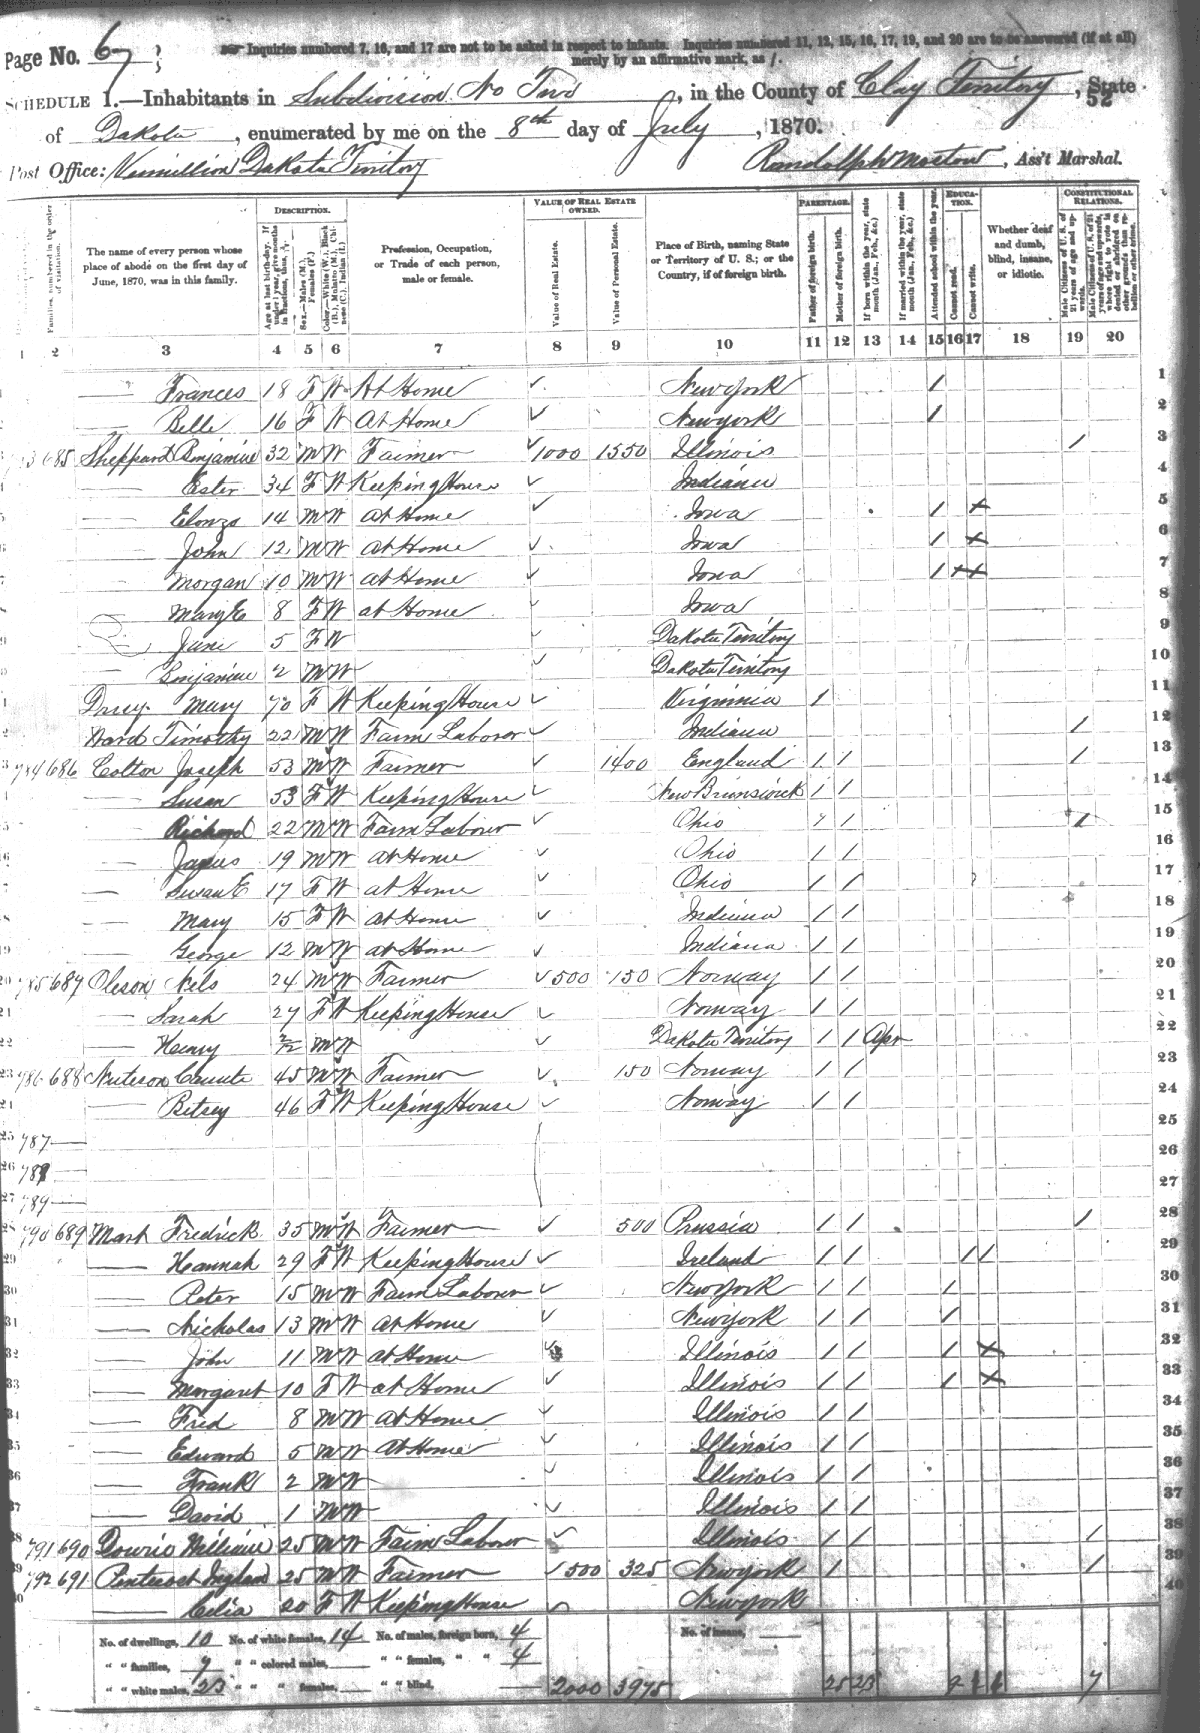 Page No. 67
Inquiries numbered 7, 16, and 17 are not to be asked in respect to infants. Inquiries numbered 11, 12, 15, 16, 17, 19, and 20 are to be answered (if at all)
merely by an affirmative mark, as /.
SCHEDULE 1.—Inhabitants in Subdivision No Two, in the County of Clay Territory, State
52
of Dakota, enumerated by me on the 8th day of July, 1870.
Post Office: Vermillion Dakota Territory Randolph, Ass't Marshal.
DESCRIPTION. VALUE OF REAL ESTATE OWNED. PARENTAGE. EDUCATION. CONSTITUTIONAL RELATIONS.
Families, numbered in the order of visitation.
The name of every person whose place of abode on the first day of June, 1870, was in this family.
Age at last birth-day. If under 1 year, give months in fractions, thus,
Sex.—Males (M.), Females (F.)
Color.—White (W.), Black (B.), Mulatto (M.), Chinese (C.), Indian (I.)
Profession, Occupation, or Trade of each person, male or female.
Value of Real Estate.
Value of Personal Estate.
Place of Birth, naming State or Territory of U. S.; or the Country, if of foreign birth.
Father of foreign birth.
Mother of foreign birth.
If born within the year, state month (Jan., Feb., &c.)
If married within the year, state month (Jan., Feb., &c.)
Attended school within the year.
Cannot read.
Cannot write.
Whether deaf and dumb, blind, insane, or idiotic.
Male Citizens of U. S. of 21 years of age and upwards.
Male Citizens of U. S. of 21 years of age and upwards, whose right to vote is denied or abridged on other grounds than rebellion or other crime.
1 2 3 4 5 6 7 8 9 10 11 12 13 14 15 16 17 18 19 20
— Frances 18 F W At Home ✓ New york / 1
— Belle 16 F W At Home ✓ New york / 2
685 Sheppard Benjamine 32 M W Farmer ✓ 1000 1550 Illinois / 3
— Ester 34 F W Keeping House ✓ Indiana 4
— Elonzo 14 M W at Home ✓ Iowa / + 5
— John 12 M W at Home ✓ Iowa / + 6
— Morgan 10 M W at Home ✓ Iowa / + + 7
— Mary E 8 F W at Home ✓ Iowa 8
— Jane 5 F W ✓ Dakota Territory 9
— Benjamine 2 M W ✓ Dakota Territory 10
Mary 70 F W Keeping House ✓ Virginnia / 11
Ward Timothy 22 M W Farm Laborer ✓ Indiana / 12
784 686 Colton Joseph 53 M W Farmer ✓ 1400 England / / / 13
— Susan 53 F W Keeping House ✓ New Brunswick / / 14
— Richard 22 M W Farm Laborer ✓ Ohio / / / 15
— 19 M W at Home ✓ Ohio / / 16
— Susan E 17 F W at Home ✓ Ohio / / 17
— Mary 15 F W at Home ✓ Indiana / / 18
— George 12 M W at Home ✓ Indiana / / 19
785 687 Oleson Nels 24 M W Farmer ✓ 500 150 Norway / / 20
— Sarah 27 F W Keeping House ✓ Norway / / 21
— Henry 2/12 M W ✓ Dakota Territory / / Apr 22
786 688 Nuteson Canute 45 M W Farmer ✓ 150 Norway / / 23
— Betsey 46 F W Keeping House ✓ Norway / / 24
25 787 — 25
26 788 — 26
27 789 — 27
790 689 Mart Fredrick 35 M W Farmer ✓ 500 Prussia / / / 28
— Hannah 29 F W Keeping House ✓ Ireland / / / / 29
— Peter 15 M W Farm Laborer ✓ New york / / / 30
— Nicholas 13 M W at Home ✓ New york / / / 31
— John 11 M W at Home Illinois / / / X 32
— Margaret 10 F W at Home ✓ Illinois / / / X 33
— Fred 8 M W at Home ✓ Illinois / / 34
— Edward 5 M W at Home ✓ Illinois / / 35
— Frank 2 M W Illinois / / 36
— David 1 M W ✓ Illinois / / 37
791 690 Dowrie 25 M W Farm Laborer ✓ Illinois / / / 38
792 691 Pentecost 25 M W Farmer ✓ 500 325 New york / / 39
— Celia 20 F W Keeping House New york 40
No. of dwellings, 10 No. of white females, 14 No. of males, foreign born, 4 No. of insane,
" " families, 9 " " colored males, " " females, " " 4
" " white males, 23 " " " females, " " blind, 2000 3975 25 23 7